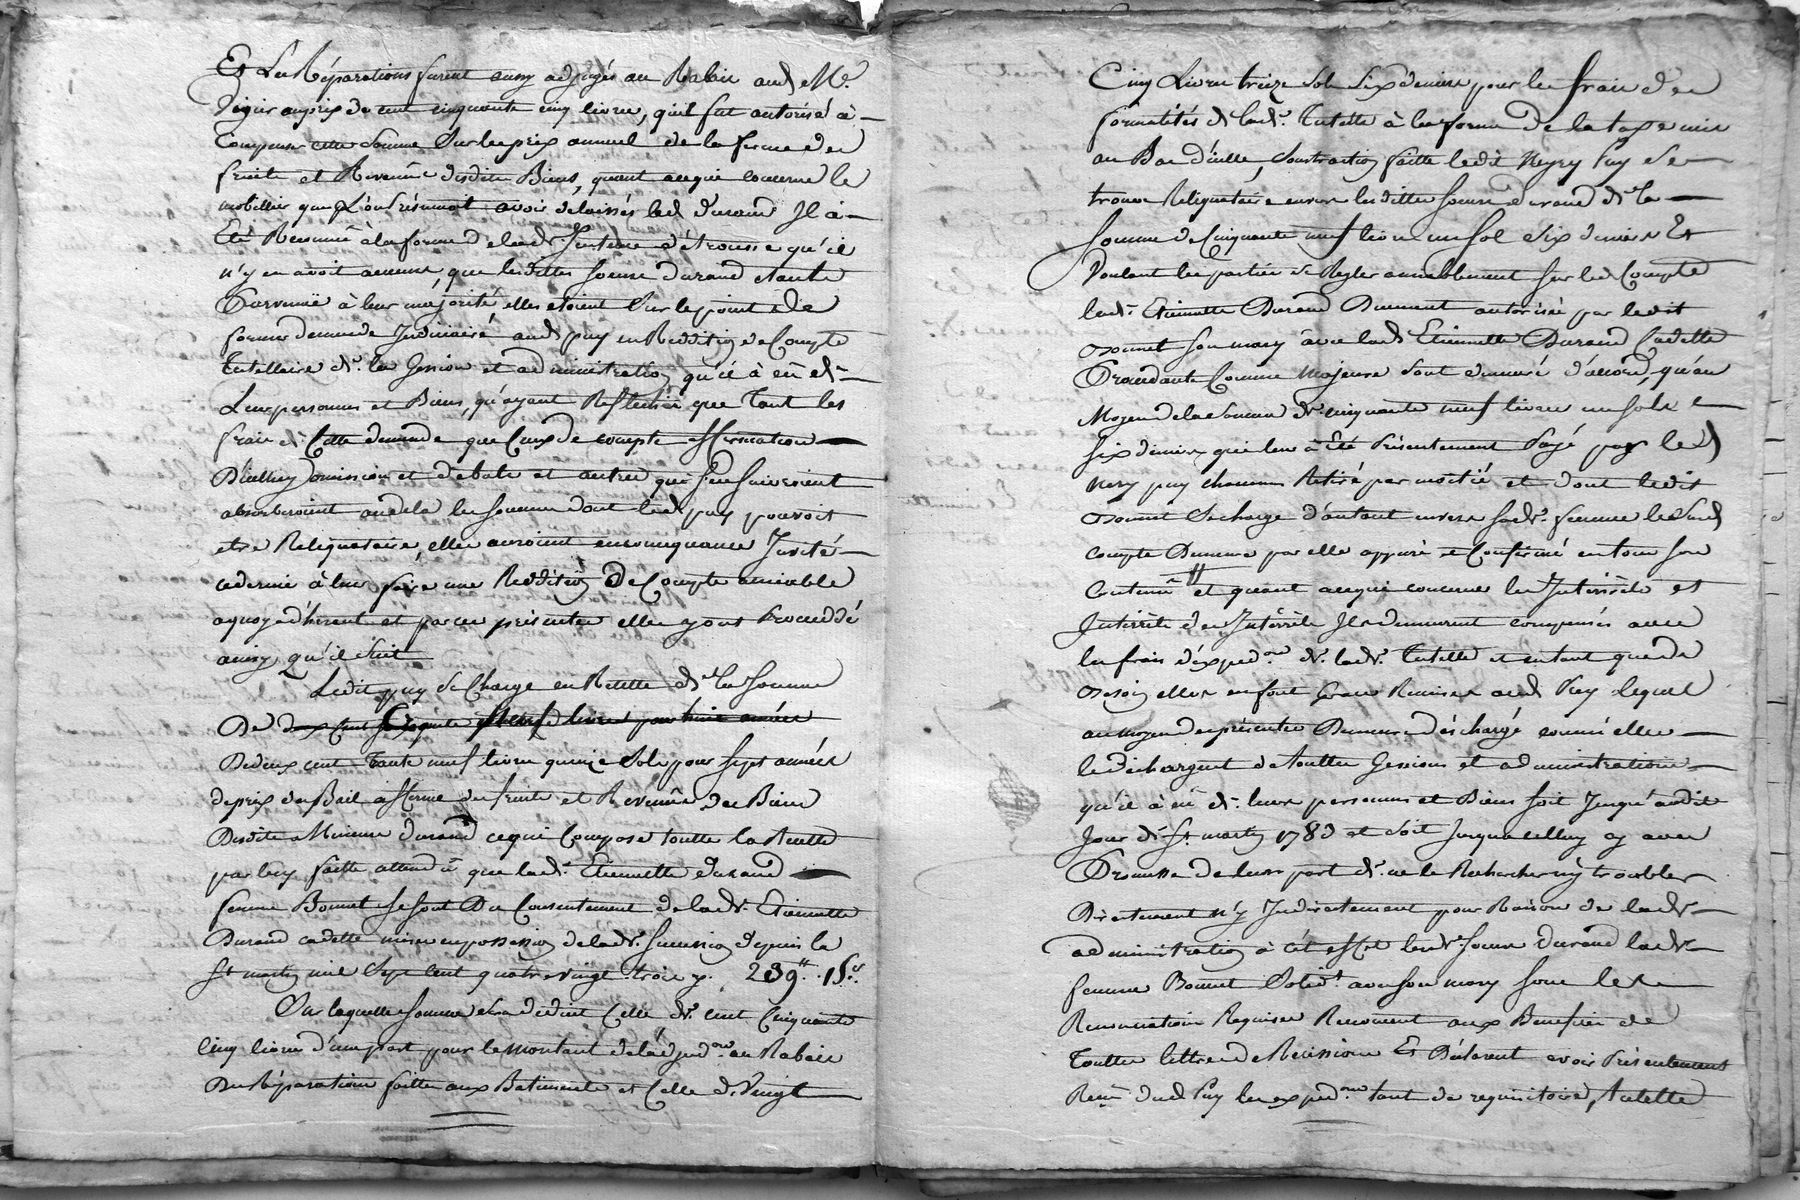 Et Les Réparations furent aussy adjugés au Rabais aud. Me.
au prix de cent cinquante cinq livres, qu'il fut autorisé à
Compenser cette somme Sur le prix annuel de la ferme des
fruits et Revenus desdits Biens, quant a ce qui concerne le
mobillier que L'on présumoit avoir delaissés led. Durand Il à
Eté Reconnu à la forme de lad.e Sentence d'étrousse qu'il
n'y en avoit aucuns, que lesdittes soeurs Durand étants
Parvenuë à leur majorité, elles etoient Sur le point de
former demande Judiciaire aud. puy en Reddition de Compte
Tutellaire de la Gession et administration qu'il à eü de
Leurs personnes et Biens, qu'ayant Refléchis que Tant les
frais de Cette demande que Ceux de compte affirmation
D'icelluy omission et debats et autres qui s'en suivroient
absorberoient audela les sommes dont led. puy pouvoit
etre Reliquataire, elles auroient en consequance Invité
ce dernier à leur faire une Reddition de Compte amiable
a quoy adhérent et par ces présentes elles y ont Proceddé
ainsy qu'il Suit
Ledit puy se Charge en Recette de la Somme
De deux Cent livres pour huit années
De deux cent Trante neuf livres quinze Sols pour sept années
de prix du Bail à fferme des fruits et Revenus des Biens
Desdits Mineurs Durand ce qui Compose toutte la Recette
par luy faitte attendu que lad. Etiennette Durand
femme Bonnet se sont Du Consentement de lad.e Etiennette
Durand cadette mises en possession de lad.e Succession depuis la
St martin mil Sept Cent quatre vingt trois cy. 239.tt 15.s
Sur laquelle somme sera déduit Celle de cent Cinquante
Cinq livres d'une part pour le montant de l'adjud.on au Rabais
Des Réparations faittes aux Batiments et Celle de Vingt
Cinq Livres treize Sols Six deniers pour les frais des
formalités de lad.e Tutelle à la forme de la taxe mise
au Bas d'icelle, Soustraction faitte ledit Neyry Puy se
trouve Reliquataire envers lesdittes soeurs Durand de la
Somme de Cinquante neuf livres un sol Six deniers Et
Voulant les parties se Regler amiablement sur led. Compte
lad.e Etiennette Durand Duement autorisée par ledit
Bonnet son mary avec lad. Etiennette Durand Cadette
Procédante Comme Majeure Sont demeuré d'acord, qu'au
Moyen de la somme de cinquante neuf livres un sols
six deniers qui leur à Eté Présentement Payé par led.
Nery puy chacune Retiré par moitié et dont ledit
Bonnet se charge d'autant envers sad.e femme led. Susd.
compte Demeure par elles appuré et Confirmé en tout son
Contenu et quant a ce qui concerne les Intérêts et
Intérêts des Intérêts Ils demeurent compensés avec
les frais d'expéd.on de lad.e Tutelle et en tant que de
Besoin elles en font Grace Remise aud. Puy Lequel
au moyen des présentes Demeure déchargé comme elles
le déchargent de touttes Gessions et administrations
qu'il à eü de leurs personnes et Biens soit Jusqu'audit
Jour de St martin 1783 et soit jusqua celluy cy avec
Promesse de leur part de ne le Rechercher ny troubler
Directement N'y Indirectement pour Raison de lad.e
administration à cet effet lesd.es soeurs Durand lad.e
femme Bonnet Solid.t avec son mary sous les
Renonciations Requises Renoncent aux Benefices de
Touttes lettres de Recission Et Déclarent avoir Présentement
Reçu dud. Puy les expéd.ons tant de requisitoire, Tutelle